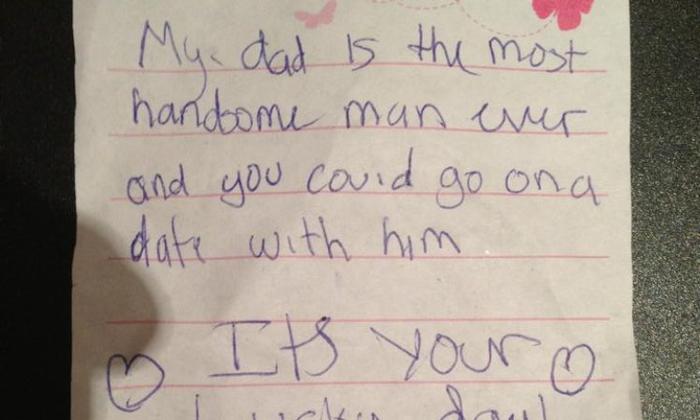 My dad is the most
handsome man ever
and you could go on a
date with him
Its your
lucky day!